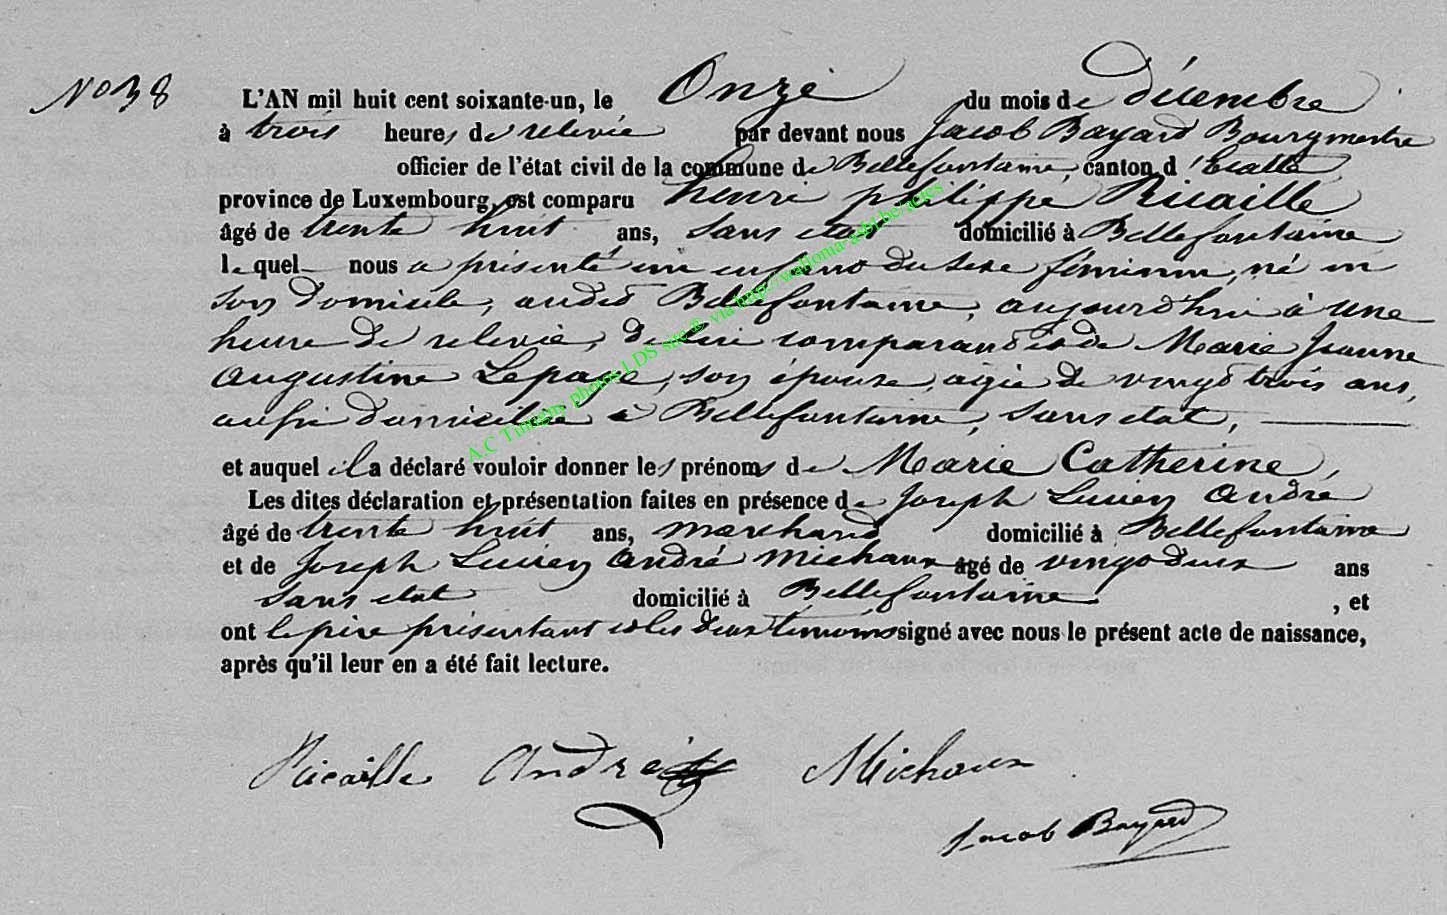 No 38
L'AN mil huit cent soixante-un, le Onze du mois de décembre
à trois heures de relevée par devant nous Jacob Bayard Bourgmestre
officier de l'état civil de la commune de Bellefontaine, canton d'Etalle
province de Luxembourg, est comparu henri philippe Ricaille
âgé de trente huit ans, sans etat domicilié à Bellefontaine
lequel nous a présenté un enfant du sexe féminin, né en
son domicile, audit Bellefontaine, aujourd'hui à une
heure de relevée, de lui comparant et de Marie Jeanne
augustine Lepage, son épouse, agée de vingt trois ans,
aussi domiciliée à Bellefontaine, sans etat,
et auquel il a déclaré vouloir donner les prénoms de Marie Catherine,
Les dites déclaration et présentation faites en présence de Joseph Lucien André
âgé de trente huit ans, marchand domicilié à Bellefontaine
et de Joseph Lucien André Michaux âgé de vingt deux ans
sans etat domicilié à Bellefontaine, et
ont le père présentant et les deux témoins signé avec nous le présent acte de naissance,
après qu'il leur en a été fait lecture.
Ricaille André Michaux
Jacob Bayard
A.C Tintigny photos LDS site © via http://wallonia-asbl.be/actes